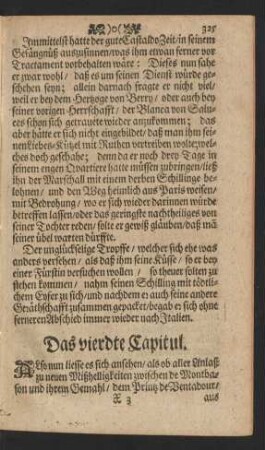 )o( 325
Immittelst hatte der gute Castaldo Zeit / in seinem
Gefängnüß auszusinnen / was ihm etwan ferner vor
Tractament vorbehalten wäre: Dieses nun sahe
er zwar wohl / daß es um seinen Dienst würde ge-
schehen seyn; allein darnach fragte er nicht viel/
weil er bey dem Hertzoge von Berry / oder auch bey
seiner vorigen Herrschafft / der Blanca von Salu-
tes schon sich getrauete wieder anzukommen; das
aber hätte er sich nicht eingebildet / daß man ihm sei-
nen Liebes-Kützel mit Ruthen vertreiben wolte; wel-
ches doch geschahe; denn da er noch drey Tage in
seinem engen Quartiere hatte müssen zubringen / ließ
ihn der Marschall mit einem derben Schillinge be-
lohnen / und den Weg heimlich aus Paris weisen/
mit Bedrohung / wo er sich wieder darinnen würde
betreffen lassen / oder das geringste nachtheiliges von
seiner Tochter reden / solte er gewiß gläuben / daß mä
seiner übel warten dürffte.
Der unglückselige Tropffe / welcher sich ehe was
anders versehen / als daß ihm seine Küsse / so er bey
einer Fürstin versuchen wollen / so theuer solten zu
stehen kommen / nahm seinen Schilling mit tödtli-
chem Eyfer zu sich / und nachdem er auch seine andere
Geräthschafft zusammen gepacket / begab er sich ohne
ferneren Abschied immer wieder nach Italien.
Das vierdte Capitul.
Also nun liesse es sich ansehen / als ob aller Anlaß
zu neuen Mißhelligkeiten zwischen de Montba-
son und ihrem Gemahl / dem Printz de Ventadour/
X 3 aus